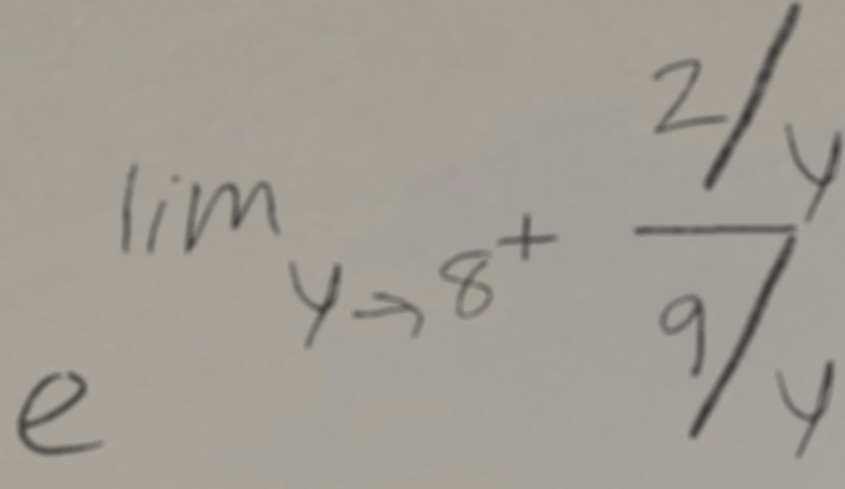 e^{\lim_{y \to 8^+} \frac{2/y}{9/y}}